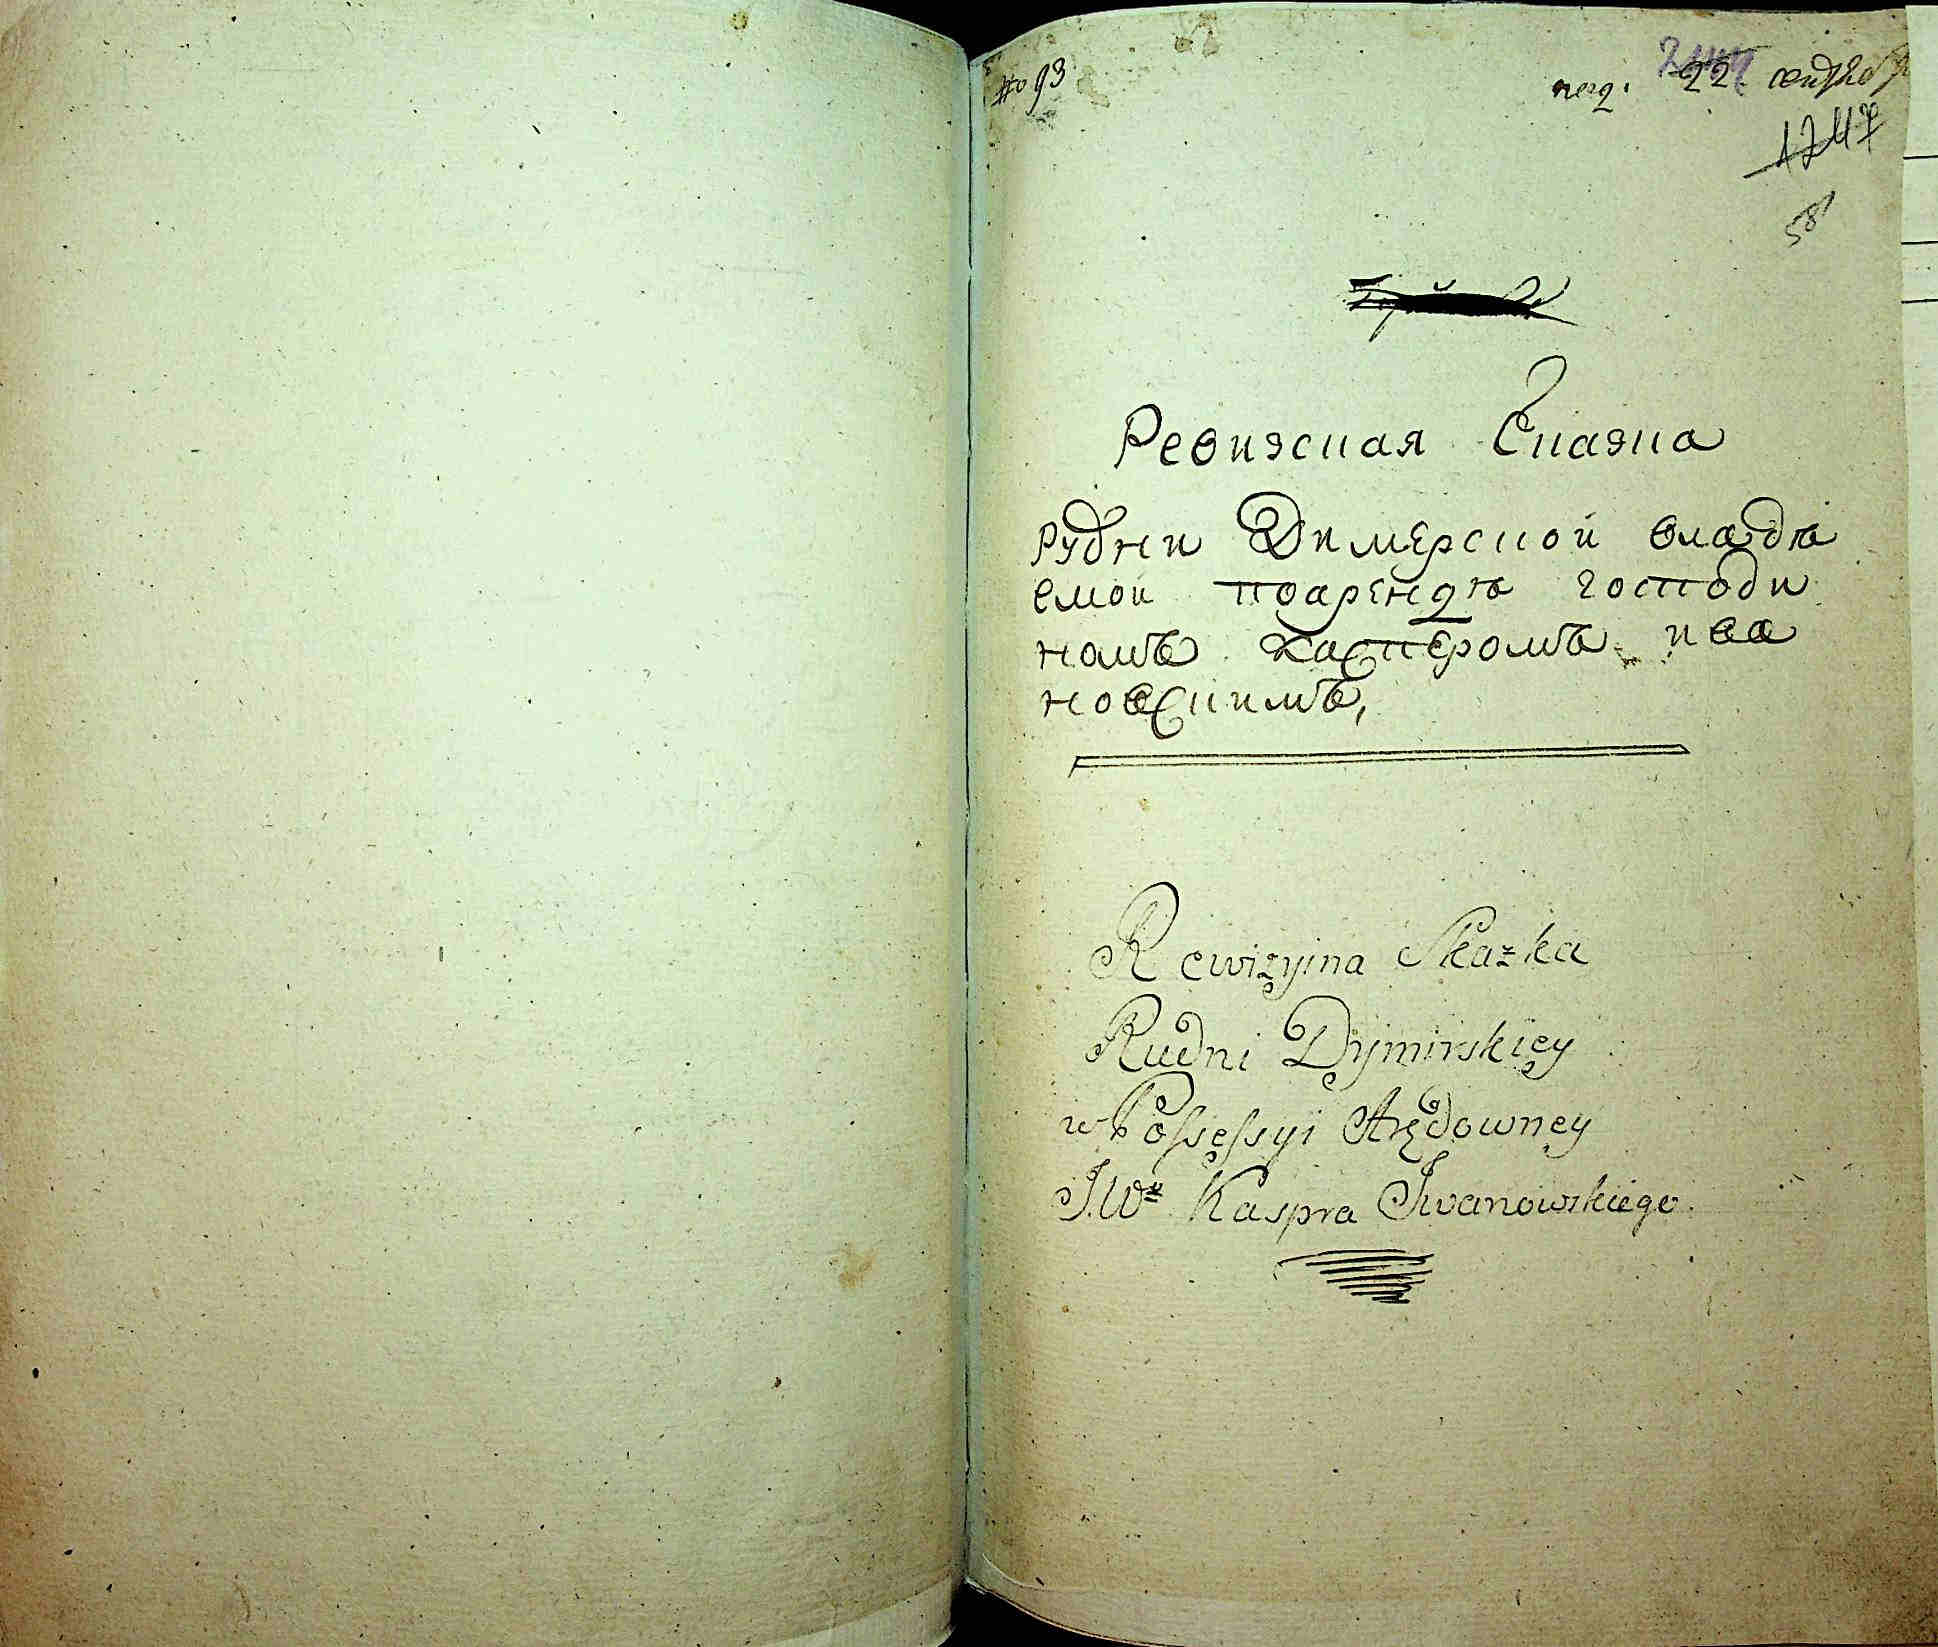 № 93
под. 22 сентября
1247
58
Ревизская Сказка
Рудни Димерской владѣ
емой поарендѣ господи
номъ каспЕромъ ива
новскимъ,
Rewizyina Skazka
Rudni Dymirskiey
w Possessyi Arędowney
J.W° Kaspra Jwanowskiego.